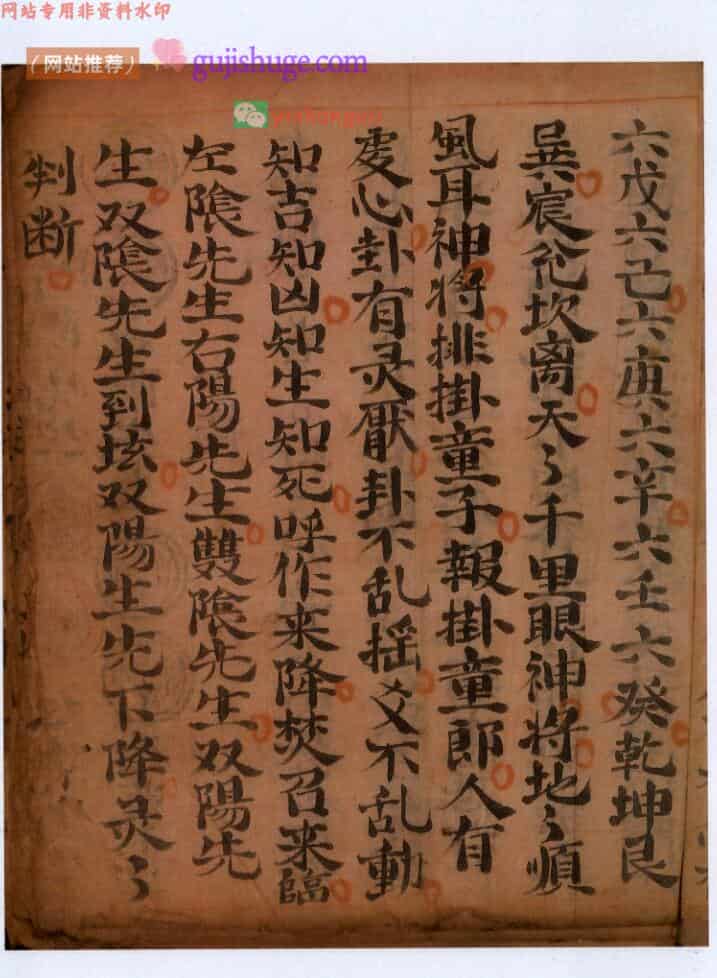 网站专用非资料水印
（网站推荐）
gujishuge.com
六戊六己六庚六辛六壬六癸乾坤艮
巽宸兊坎离天〻千里眼神将地〻順
風耳神将排掛童子報掛童郎人有
虔心卦有灵㕓卦不乱摇爻不乱動
知吉知凶知生知死呼作来降焚召来臨
左陰先生右陽先生雙陰先生双陽先
生双陰先生到坛双陽生先下降灵〻
判断